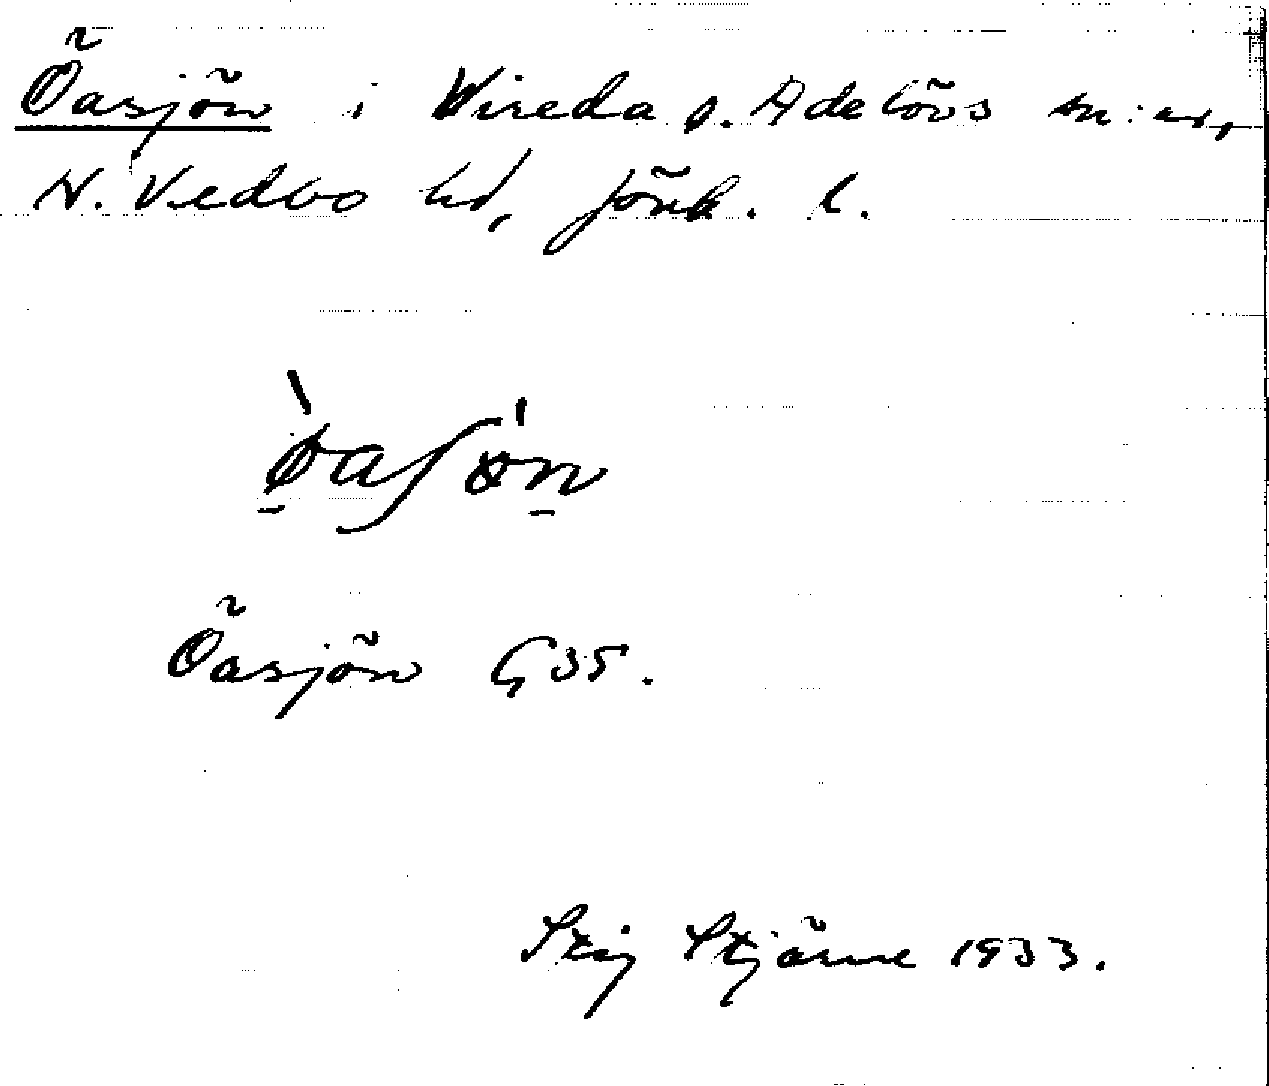 Öasjön i Wireda o. Adelövs sn:ar,
N. Vedbo hd, Jönk. l.
Öasjön G 35.
Stig Stjärne 1933.